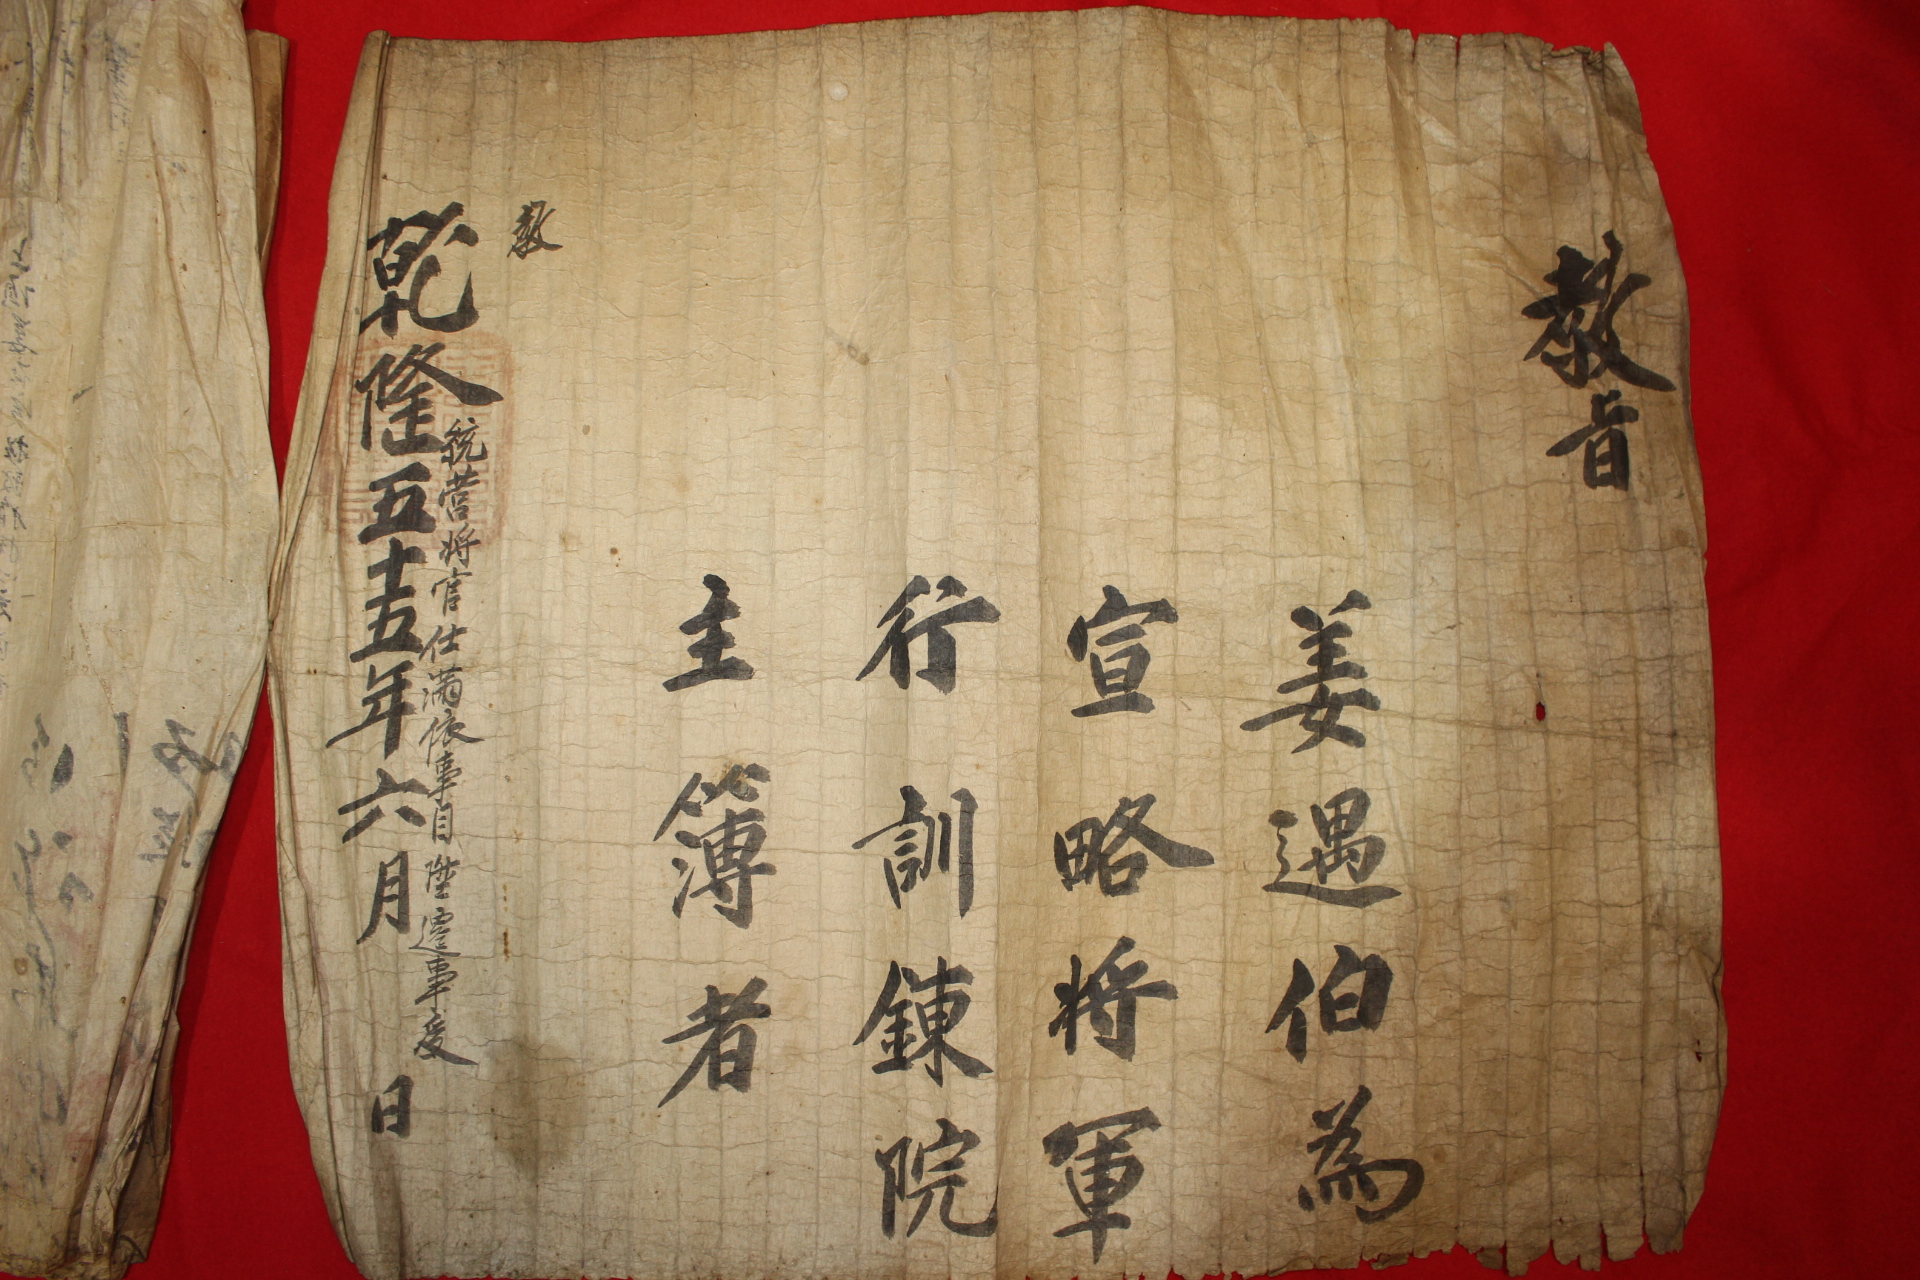 教旨
姜遇伯為
宣略将軍
行訓鍊院
主簿者
乾隆五十五年六月 日
統营将官仕満依事目陞遷事受
教